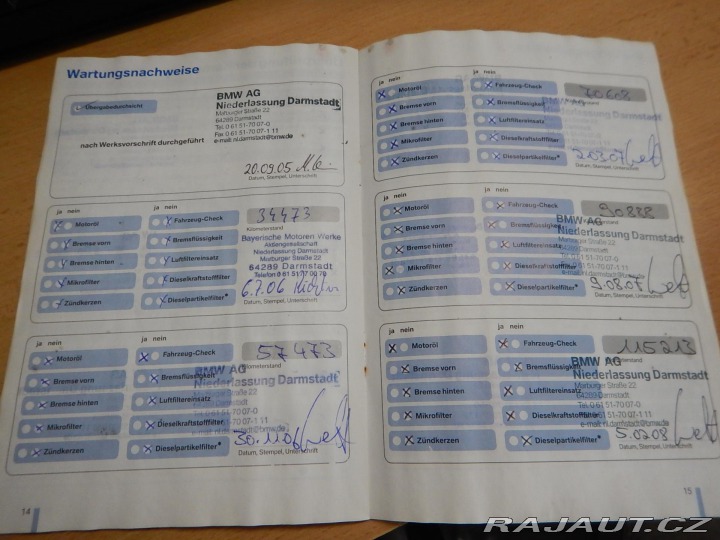 Wartungsnachweise
Übergabedurchsicht
nach Werksvorschrift durchgeführt
BMW AG
Niederlassung Darmstadt
Marburger Straße 22
64289 Darmstadt
Tel. 0 61 51-70 07-0
Fax 0 61 51-70 07-1 11
e-mail: nl.darmstadt@bmw.de
20.09.05
Datum, Stempel, Unterschrift
ja nein
Motoröl
Bremse vorn
Bremse hinten
Mikrofilter
Zündkerzen
ja nein
Fahrzeug-Check
Bremsflüssigkeit
Luftfiltereinsatz
Dieselkraftstofffilter
Dieselpartikelfilter*
34473
Kilometerstand
Bayerische Motoren Werke
Aktiengesellschaft
Niederlassung Darmstadt
Marburger Straße 22
64289 Darmstadt
6.7.06
Datum, Stempel, Unterschrift
ja nein
Motoröl
Bremse vorn
Bremse hinten
Mikrofilter
Zündkerzen
ja nein
Fahrzeug-Check
Bremsflüssigkeit
Luftfiltereinsatz
Dieselkraftstofffilter
Dieselpartikelfilter*
57473
BMW AG
Niederlassung Darmstadt
Marburger Straße 22
64289 Darmstadt
30.11.06
Datum, Stempel, Unterschrift
14
ja nein
Motoröl
Bremse vorn
Bremse hinten
Mikrofilter
Zündkerzen
ja nein
Fahrzeug-Check
Bremsflüssigkeit
Luftfiltereinsatz
Dieselkraftstofffilter
Dieselpartikelfilter*
70608
Datum, Stempel, Unterschrift
ja nein
Motoröl
Bremse vorn
Bremse hinten
Mikrofilter
Zündkerzen
ja nein
Fahrzeug-Check
Bremsflüssigkeit
Luftfiltereinsatz
Dieselkraftstofffilter
Dieselpartikelfilter*
90888
BMW AG
Niederlassung Darmstadt
Marburger Straße 22
64289 Darmstadt
9.08.07
Datum, Stempel, Unterschrift
ja nein
Motoröl
Bremse vorn
Bremse hinten
Mikrofilter
Zündkerzen
ja nein
Fahrzeug-Check
Bremsflüssigkeit
Luftfiltereinsatz
Dieselkraftstofffilter
Dieselpartikelfilter*
115213
BMW AG
Niederlassung Darmstadt
Marburger Straße 22
64289 Darmstadt
Tel. 0 61 51-70 07-0
Fax 0 61 51-70 07-1 11
e-mail: nl.darmstadt@bmw.de
5.02.08
Datum, Stempel, Unterschrift
15
RAJAUT.CZ